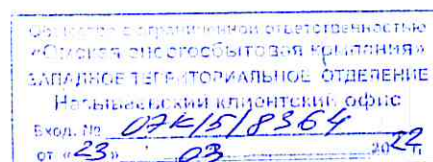 Общество с ограниченной ответственностью
«Омская энергосбытовая компания»
ЗАПАДНОЕ ТЕРРИТОРИАЛЬНОЕ ОТДЕЛЕНИЕ
Называевский клиентский офис
Вход. № 07К/5/8364
от «23» 03 2022 г.